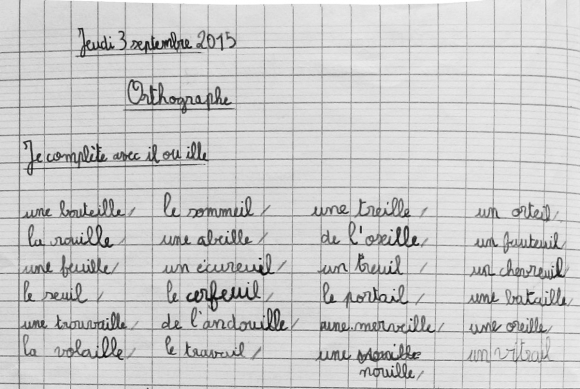 Jeudi 3 septembre 2015
Orthographe
Je complète avec il ou ille
une bouteille / le sommeil / une treille / un orteil /
la rouille / une abeille / de l'oseille / un fauteuil /
une feuille / un écureuil / un treuil / un chevreuil /
le seuil / le cerfeuil / le portail / une bataille /
une trouvaille / de l'andouille / une merveille / une oreille /
la volaille / le travail / une nouille / un vitrail